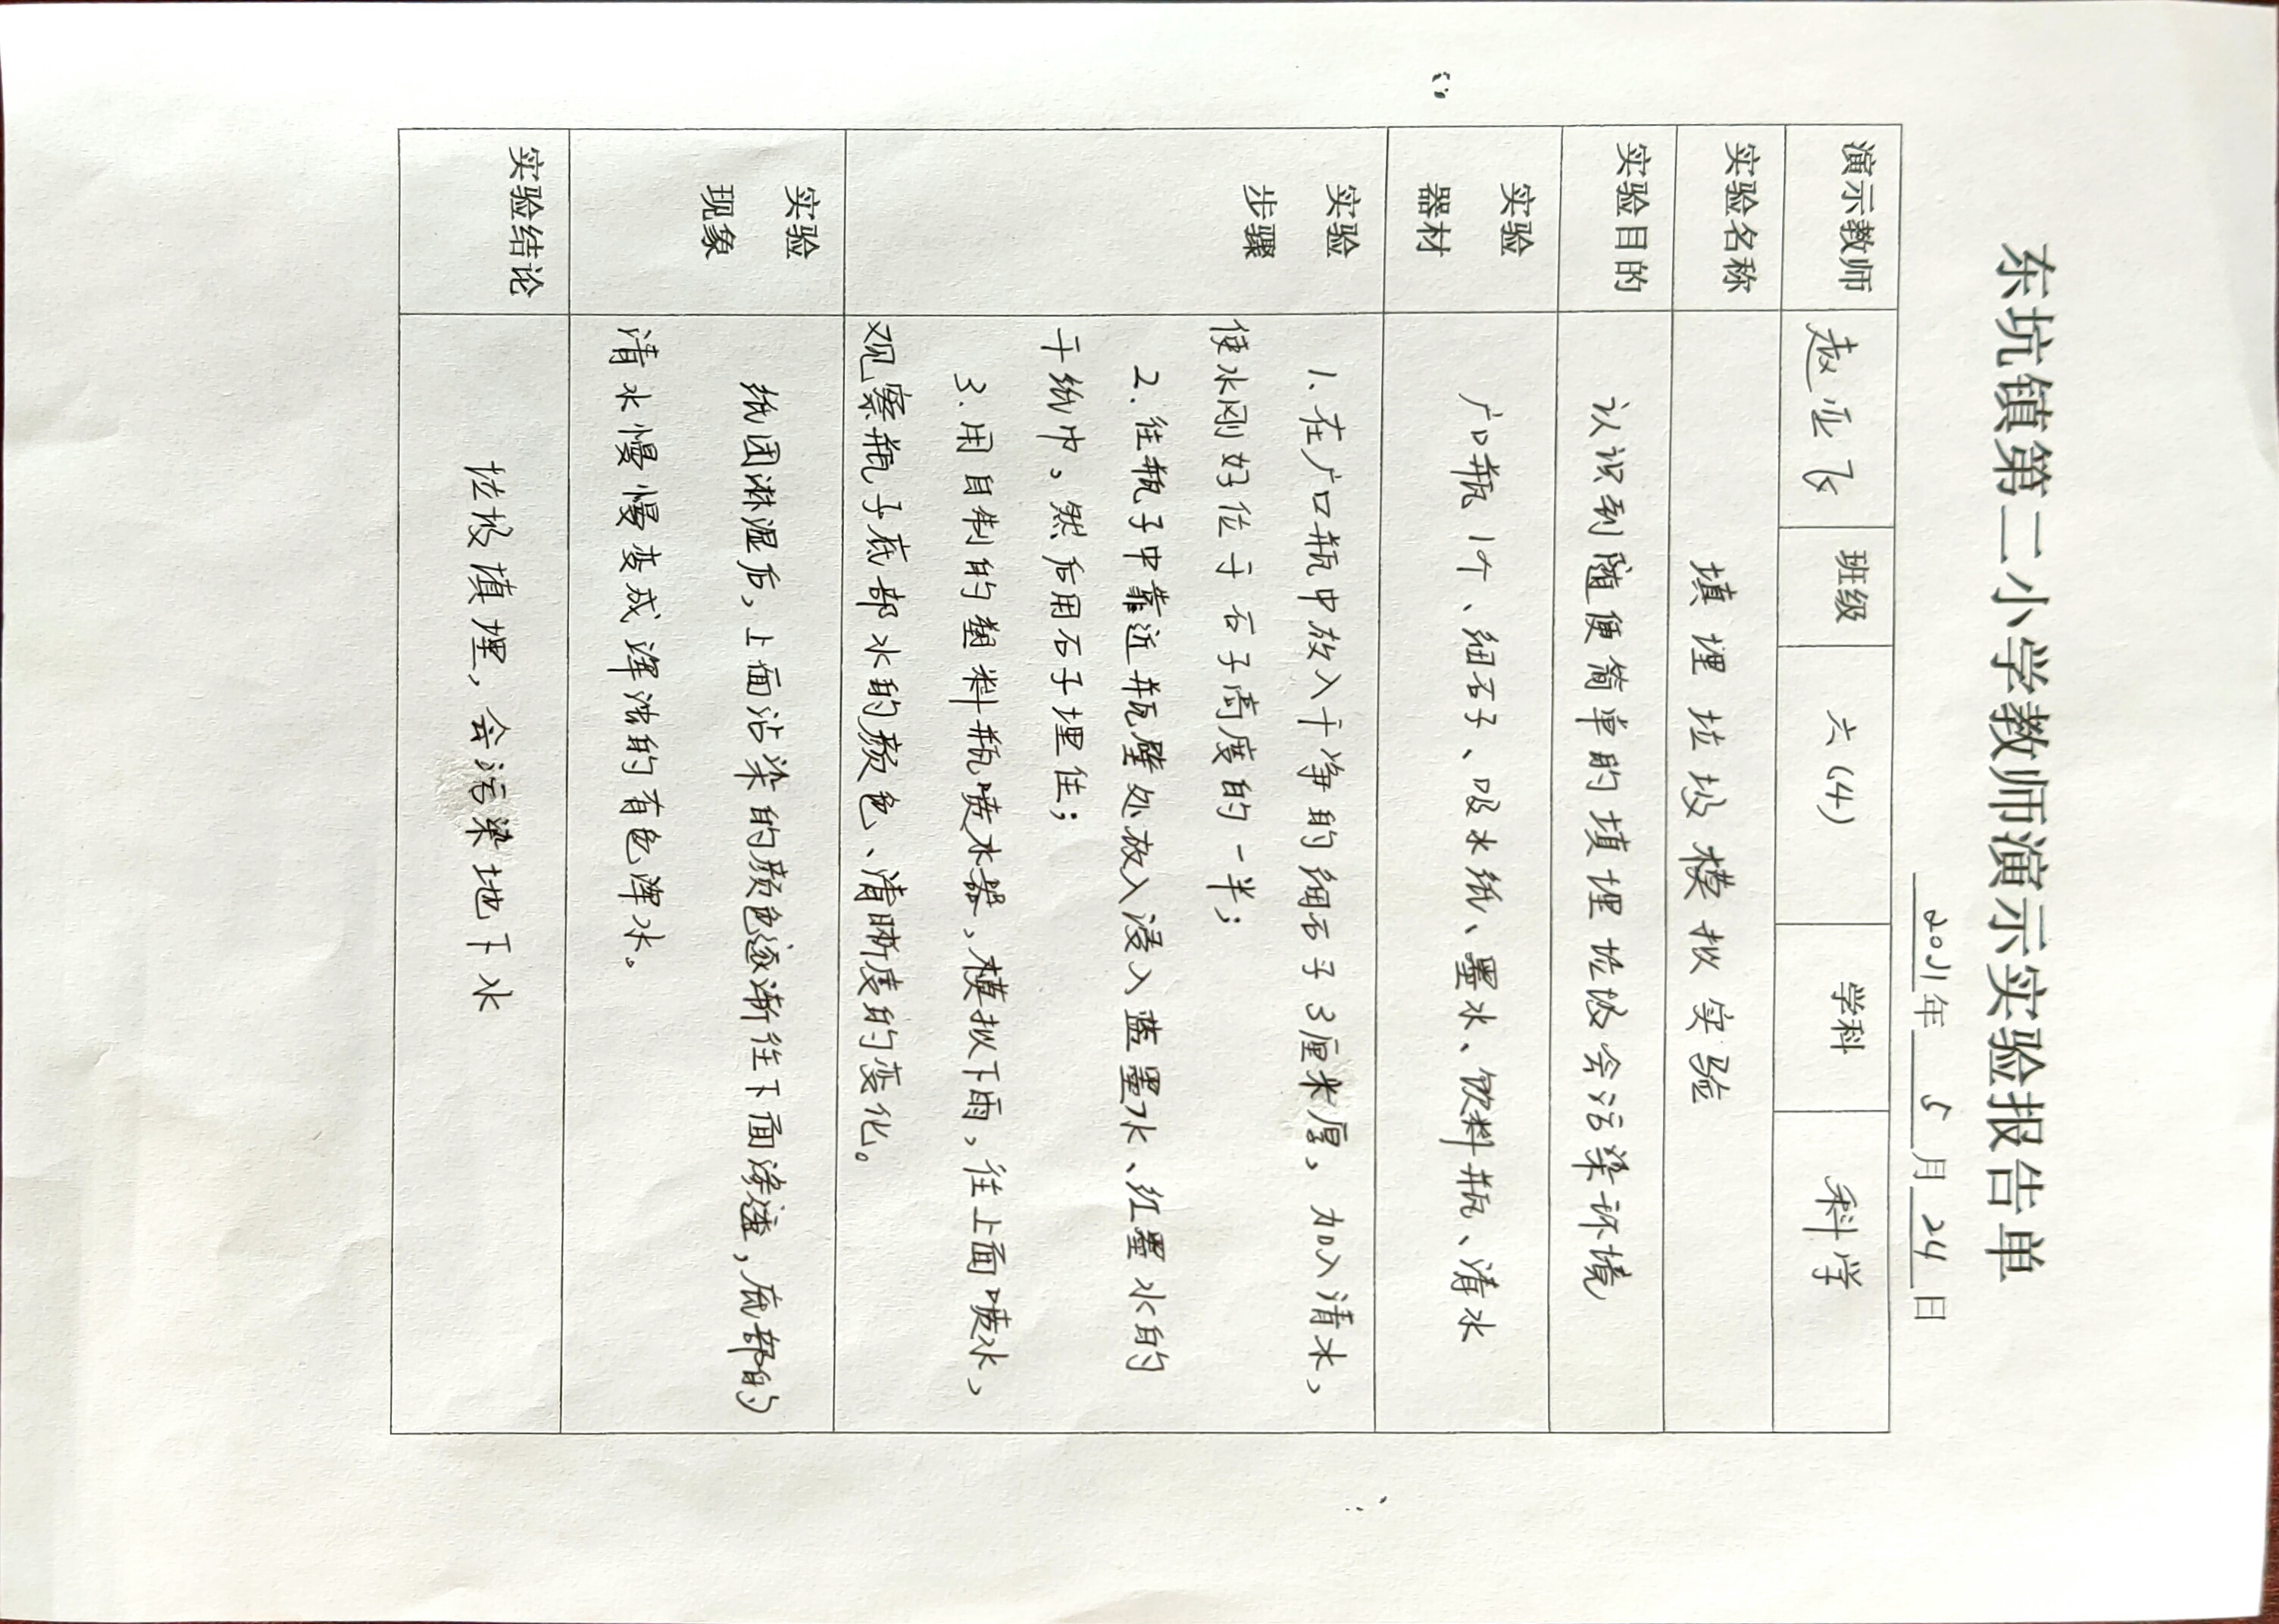 东坑镇第二小学教师演示实验报告单
2021年 5 月 24 日
演示教师 赵亚飞 班级 六(4) 学科 科学
实验名称 填埋垃圾模拟实验
实验目的 认识到随便简单的填埋垃圾会污染环境
实验
器材
广口瓶1个、细石子、吸水纸、墨水、饮料瓶、清水
实验
步骤
1.在广口瓶中放入干净的细石子3厘米厚,加入清水,
使水刚好位于石子高度的一半;
2.往瓶子中靠近瓶壁处放入浸入蓝墨水、红墨水的
干纸巾。然后用石子埋住;
3.用自制的塑料瓶喷水器,模拟下雨,往上面喷水,
观察瓶子底部水的颜色、清晰度的变化。
实验
现象
纸团淋湿后,上面沾染的颜色逐渐往下面渗透,底部的
清水慢慢变成浑浊的有色浑水。
实验结论 垃圾填埋,会污染地下水